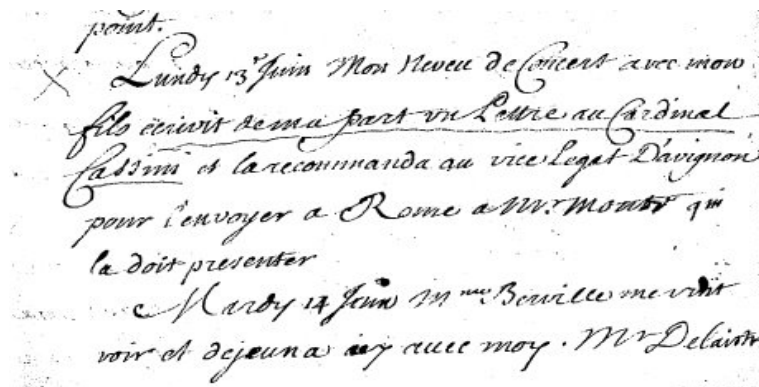 point.
Lundy 13e Juin Mon Neveu de Concert avec mon
fils ecrivit de ma part un Lettre au Cardinal
Cassini et la recommanda au vice Legat D'avignon
pour l'envoyer a Rome a Mr. qui
la doit presenter
Mardy 14 Juin Mme Berville me vint
voir et dejeuna icy avec moy. Mr